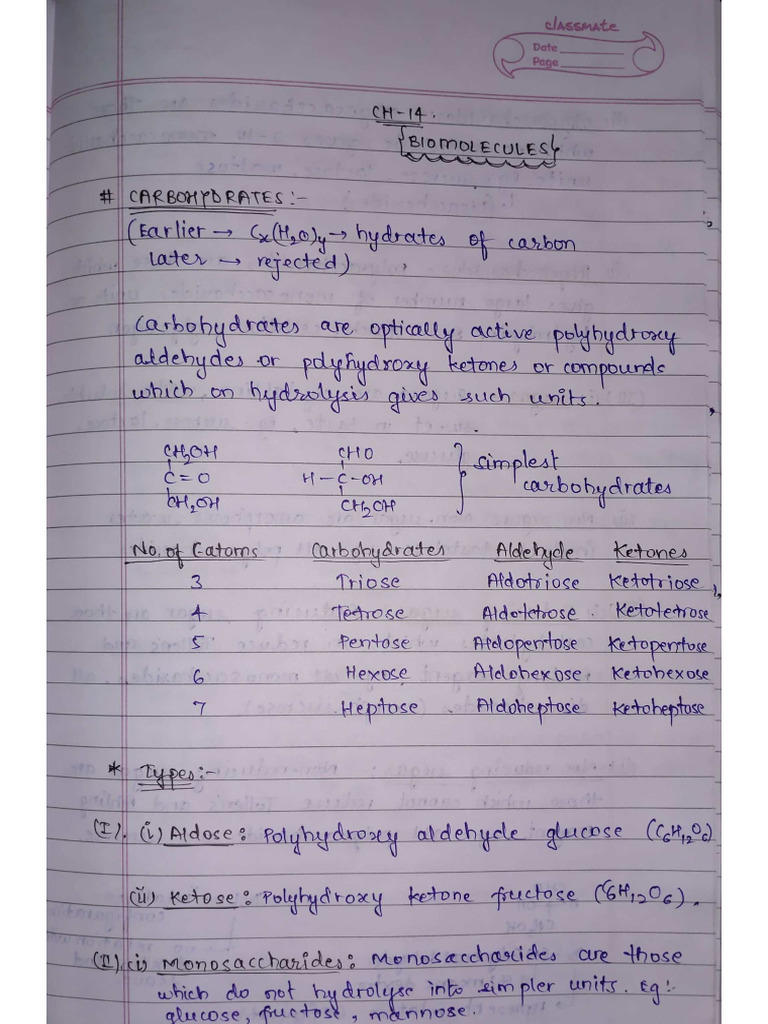 classmate
Date
Page
CH-14.
{BIOMOLECULES}
# CARBOHYDRATES:-
(Earlier → Cx(H2O)y → hydrates of carbon
later → rejected)
Carbohydrates are optically active polyhydroxy
aldehydes or polyhydroxy ketones or compounds
which on hydrolysis gives such units.
CH2OH CHO
C=O H-C-OH } simplest carbohydrates
CH2OH CH2OH
No. of C atoms Carbohydrates Aldehyde Ketones
3 Triose Aldotriose Ketotriose
4 Tetrose Aldotetrose Ketotetrose
5 Pentose Aldopentose Ketopentose
6 Hexose Aldohexose Ketohexose
7 Heptose Aldoheptose Ketoheptose
* Types:-
(I). (i) Aldose: Polyhydroxy aldehyde glucose (C6H12O6)
(ii) Ketose: Polyhydroxy ketone fructose (C6H12O6).
(II). (i) Monosaccharides: Monosaccharides are those
which do not hydrolyse into simpler units. Eg:-
glucose, fructose, mannose.